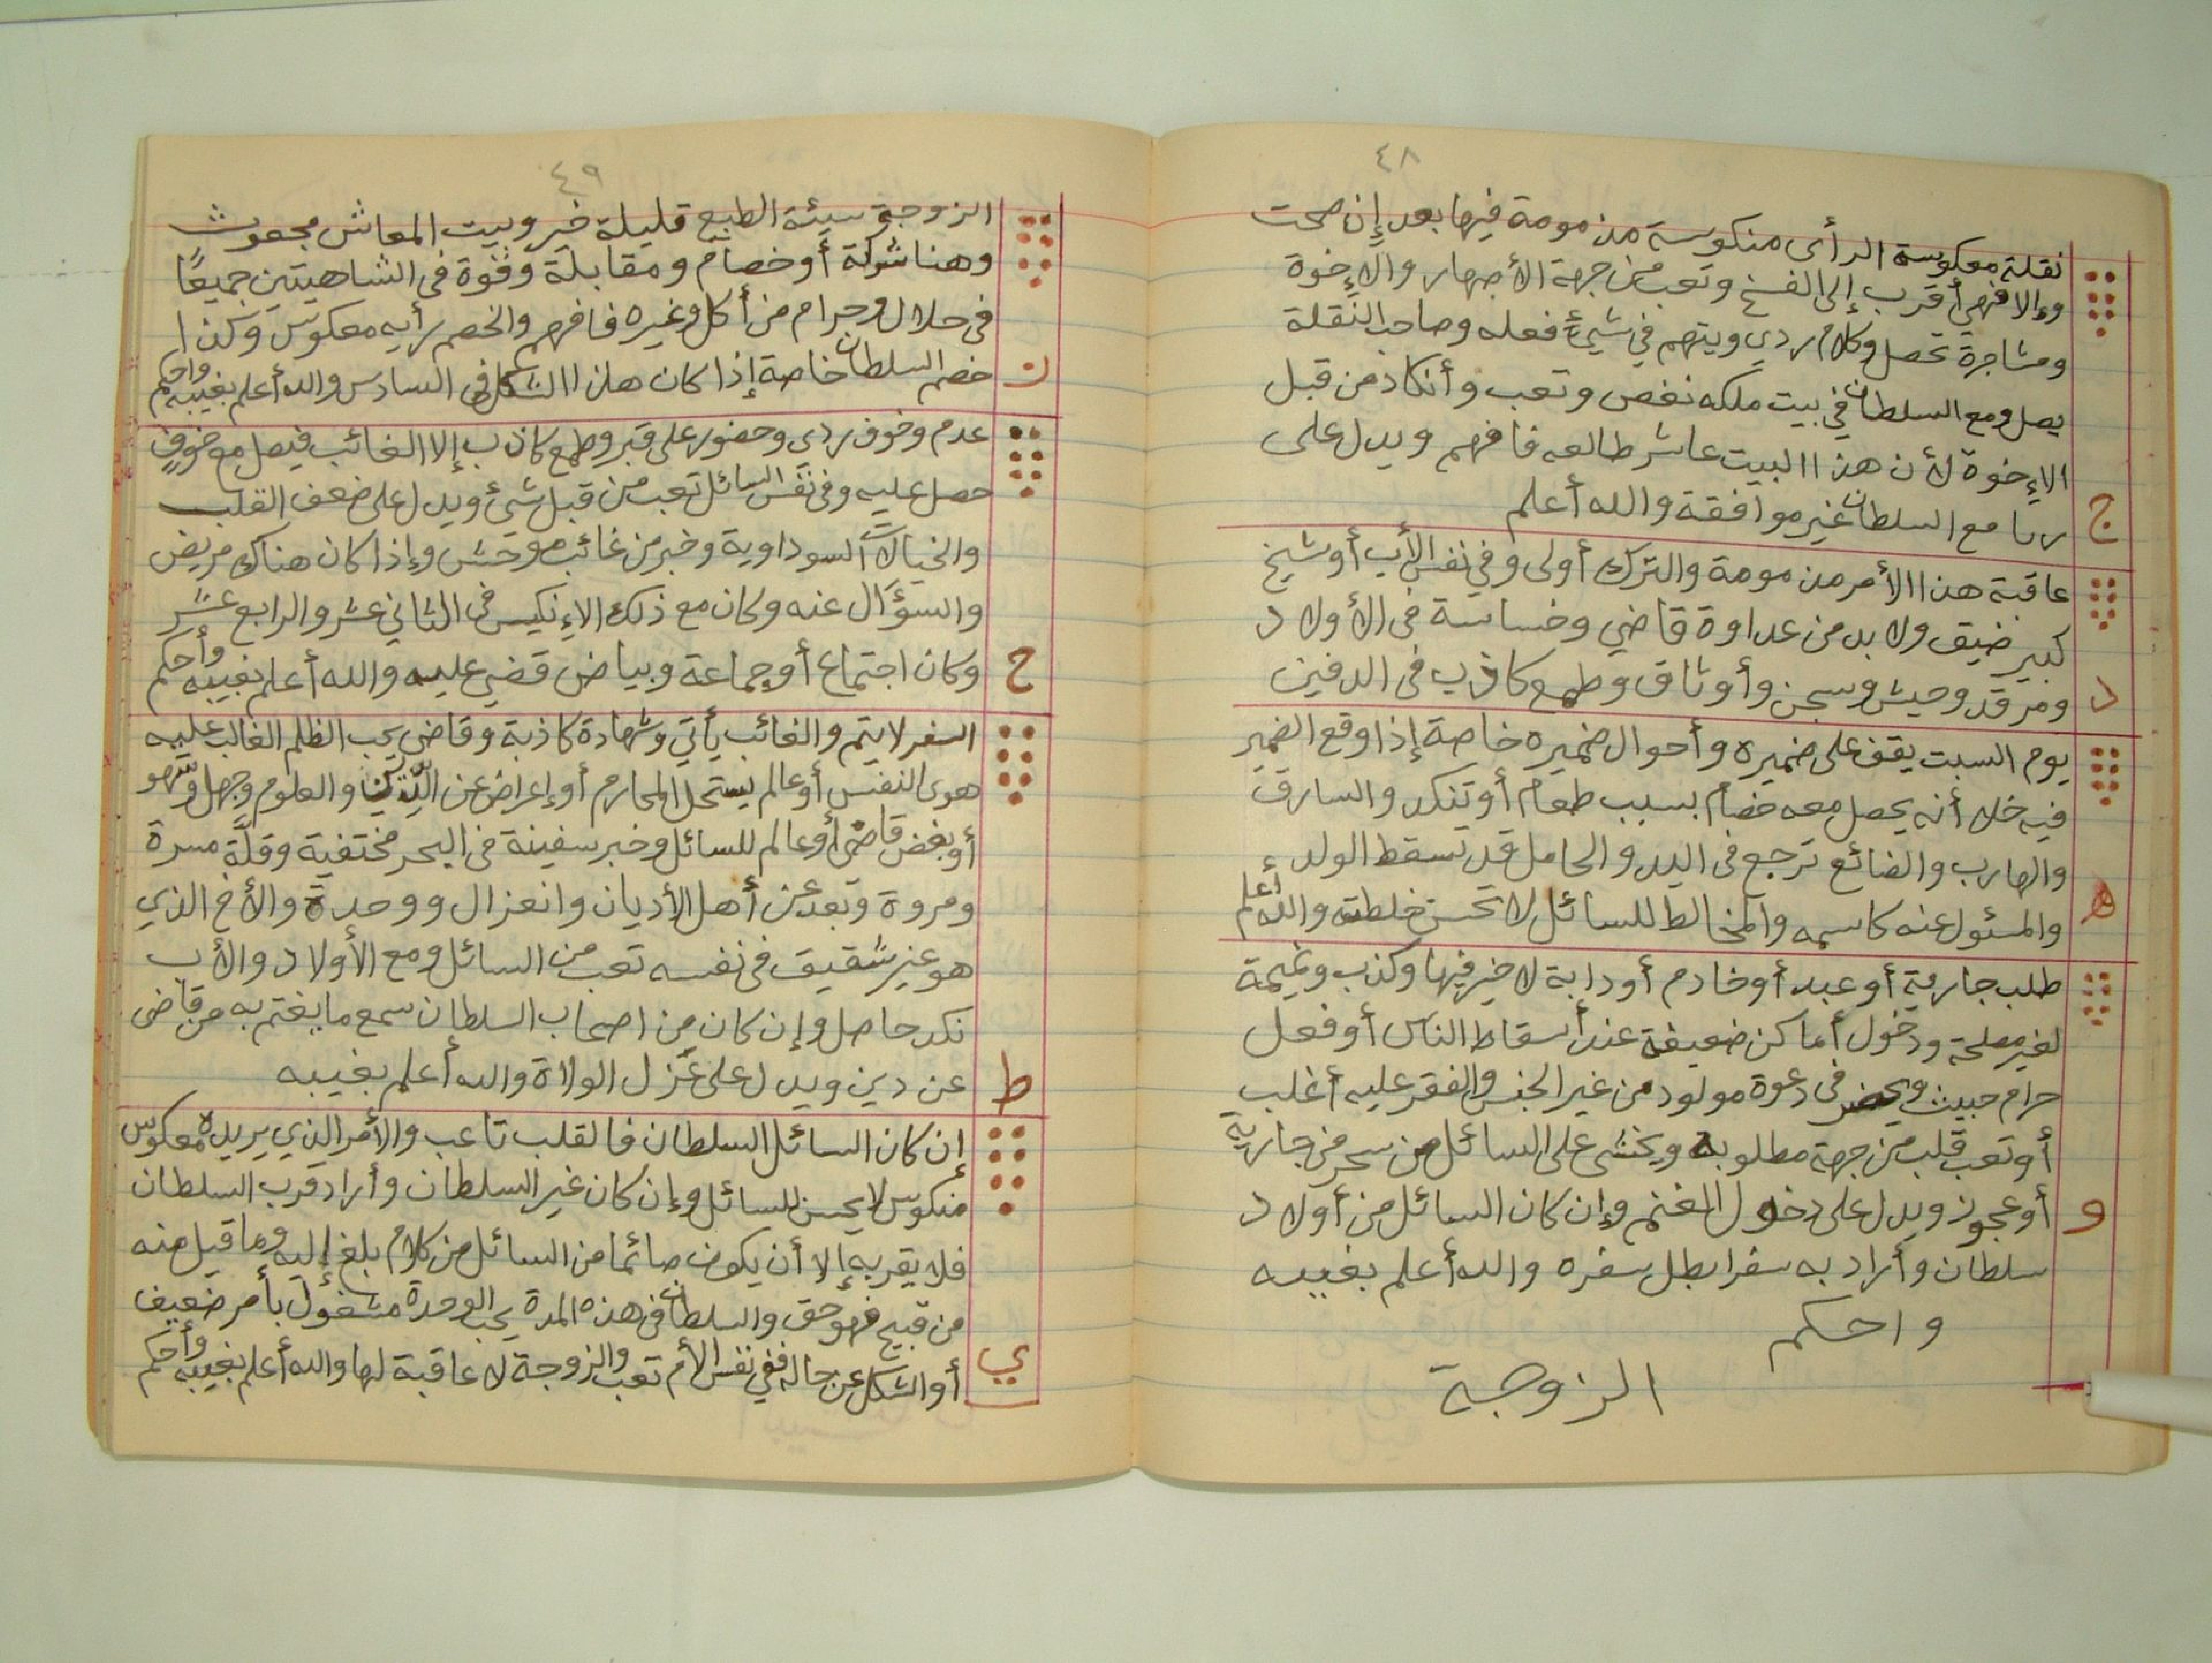 ٤٨
نقلة معكوسة الرأى منكوسة مذمومة فيها بعد إن صحت
وءالا فهي أقرب إلى الفسخ وتعب من جهة الأصهار والإخوة
ومشاجرة تحصل وكلام ردي ويتهم في شيء فعله وصاحب النقلة
يصل ومع السلطان في بيت ملكه نغص وتعب وأنكاد من قبل
الإخوة لأن هذا البيت عاشر طالعه فافهم ويدل على
ربا مع السلطان غير موافقة والله أعلم
ج
عاقبة هذا الأمر مذمومة والترك أولى وفي نفس الأب أو شيخ
كبير ضيق ولا بد من عداوة قاضي وخساسة فى الأولاد
ومرقد وحيش وسجن وأوثاق وطمع كاذب فى الدفين
د
يوم السبت يقف على ضميره وأحوال ضميره خاصة إذا وقع الضمير
فيه خلا أنه يحصل معه خصام بسبب طعام أو تنكد والسارق
والهارب والضائع ترجع فى اليد والحامل قد تسقط الولد
والمسئول عنه كاسمه والمخالط للسائل لا تحسن خلطته والله أعلم
ه
طلب جارية أو عبد أو خادم أو دابة لا خير فيها وكذب ونميمة
لغير مصلحة ودخول أماكن ضعيفة عند أسقاط الناس أو فعل
حرام خبيث ويحضر فى دعوة مولود من غير الجنس والفقر عليه أغلب
أو تعب قلب من جهة مطلوبه ويخشى على السائل من سحر من جارية
أو عجوز ويدل على دخول الغنم وإن كان السائل من أولاد
و
سلطان وأراد به سفرا بطل سفره والله أعلم بغيبه
واحكم
الزوجة
٤٩
الزوجة سيئة الطبع قليلة خير وبيت المعاش مجعوث
وهنا شركة أو خصام ومقابلة وقوة فى الشاهيتين جميعًا
فى حلال وحرام من أكل وغيره فافهم والخصم رأيه معكوس وكذا
خصم السلطان خاصة إذا كان هذا الشكل فى السادس والله أعلم بغيبه واحكم
ز
عدم وخوف ردى وحضور على قبر وطمع كاذب إلا الغائب فيصل مع خوفٍ
حصل عليه وفى نفس السائل تعب من قبل شئ ويدل على ضعف القلب
والخيالات السوداوية وخبر من غائب موحش وإذا كان هناك مريض
والسؤال عنه وكان مع ذلك الإنكيس فى الثاني عشر والرابع عشر
وكان اجتماع أو جماعة وبياض قضي عليه والله أعلم بغيبه وأحكم
ح
السفر لا يتم والغائب يأتي وشهادة كاذبة وقاضي يحب الظلم الغالب عليه
هوى النفس أو عالم يستحل المحارم أو إعراض عن الدين والعلوم وجهل وسهو
أو بغض قاضى أو عالم للسائل وخبر سفينة فى البحر مختفية وقلَّة مسرة
ومروة وبعد عن أهل الأديان وانعزال ووحدة والأخ الذي
هو غير شقيق فى نفسه تعب من السائل ومع الأولاد والأب
نكد حاصل وإن كان من اصحاب السلطان سمع ما يغتم به من قاضى
عن دين ويدل على عَزل الولاة والله أعلم بغيبه
ط
إن كان السائل السلطان فالقلب تاعب والأمر الذي يريده معكوس
منكوس لا يحسن للسائل وإن كان غير السلطان وأراد قرب السلطان
فلا يقربه إلا أن يكون صائما من السائل من كلام بلغ إليه وما قيل منه
من قبيح فهو حق والسلطان فى هذه المدة يحب الوحدة مشغول بأمر ضعيف
أو الشكل عن حاله ففي نفس الأم تعب والزوجة لا عاقبة لها والله أعلم بغيبه وأحكم
ي